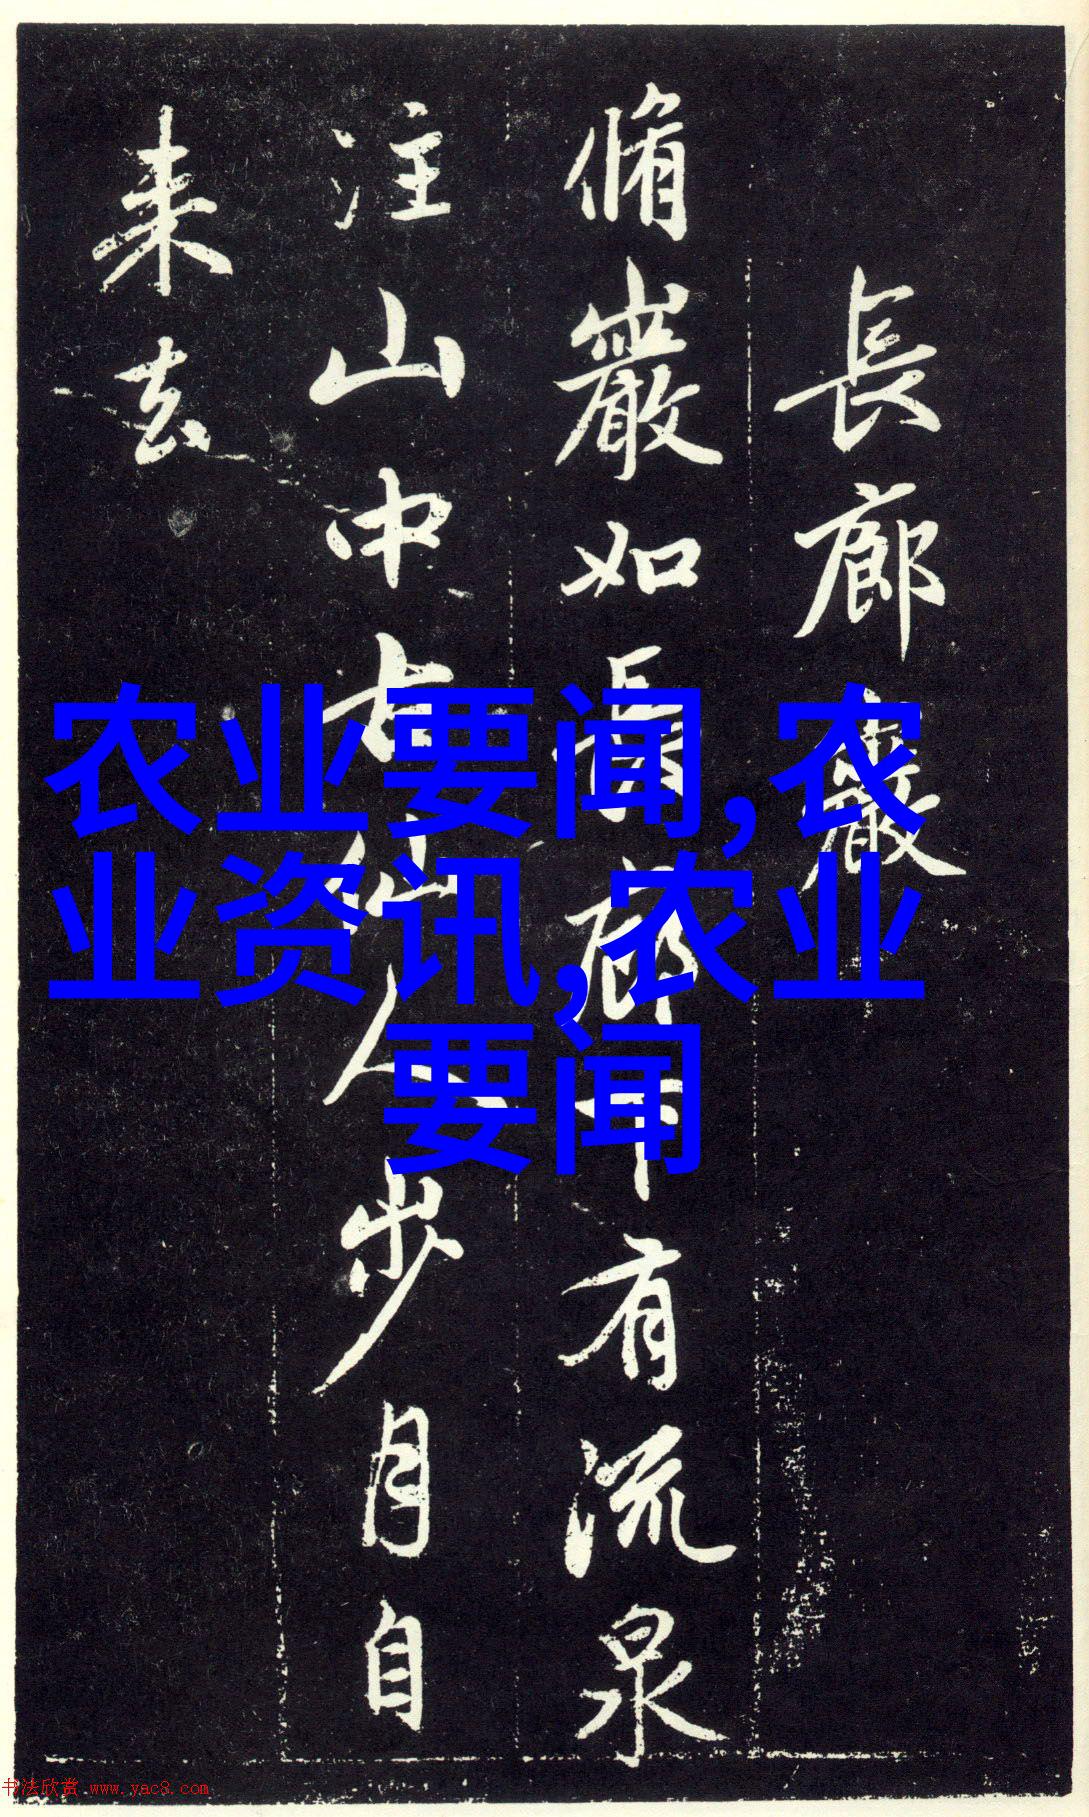 長廊巖
脩巖如長廊下有流泉
注山中古仙人步月自
来去
农业要闻,农
业资讯,农业
要闻
书法欣赏 www.yac8.com